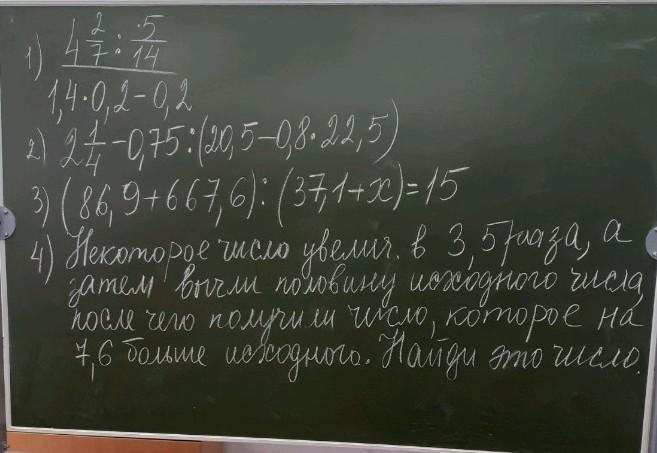 1) 4 2/7 : 5/14
1,4·0,2-0,2
2) 2 1/4 - 0,75:(20,5-0,8·22,5)
3) (86,9+667,6):(37,1+x)=15
4) Некоторое число увелич. в 3,5 раза, а
затем вычли половину исходного числа,
после чего получили число, которое на
7,6 больше исходного. Найди это число.